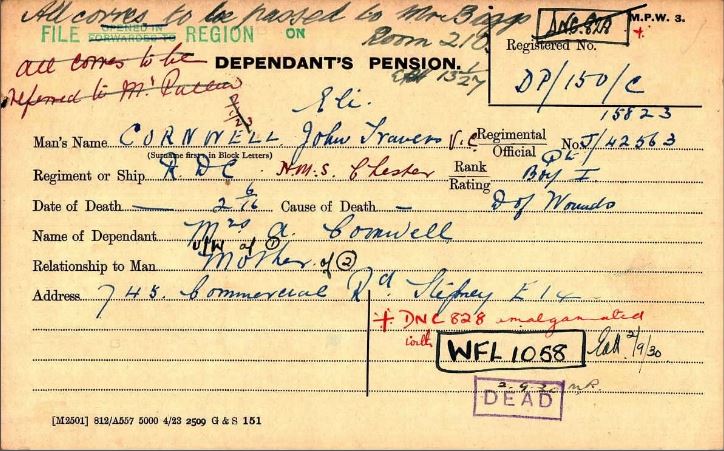 All corres to be passed to Mr Bigg
Room 210
FILE OPENED IN FORWARDED TO REGION ON
all corres to be
referred to Mr
DEPENDANT'S PENSION.
M.P.W. 3.
DNC.828
+
Registered No.
DP/150/C
15823
Eli.
Man's Name CORNWELL John Travers V.C Regimental Official No. J/42563
(Surname first, in Block Letters)
Regiment or Ship R D C H.M.S. Chester Rank Rating Pte Boy I
Date of Death — 2 6/16 Cause of Death — D of Wounds
Name of Dependant Mrs A. Cornwell
Wid of ①
Relationship to Man Mother of ②
Address 745. Commercial Rd Stepney E 14
+ DNC 828 amalgamated
with WFL 1058 2/9/30
DEAD
[M2501] 812/A557 5000 4/23 2509 G & S 151